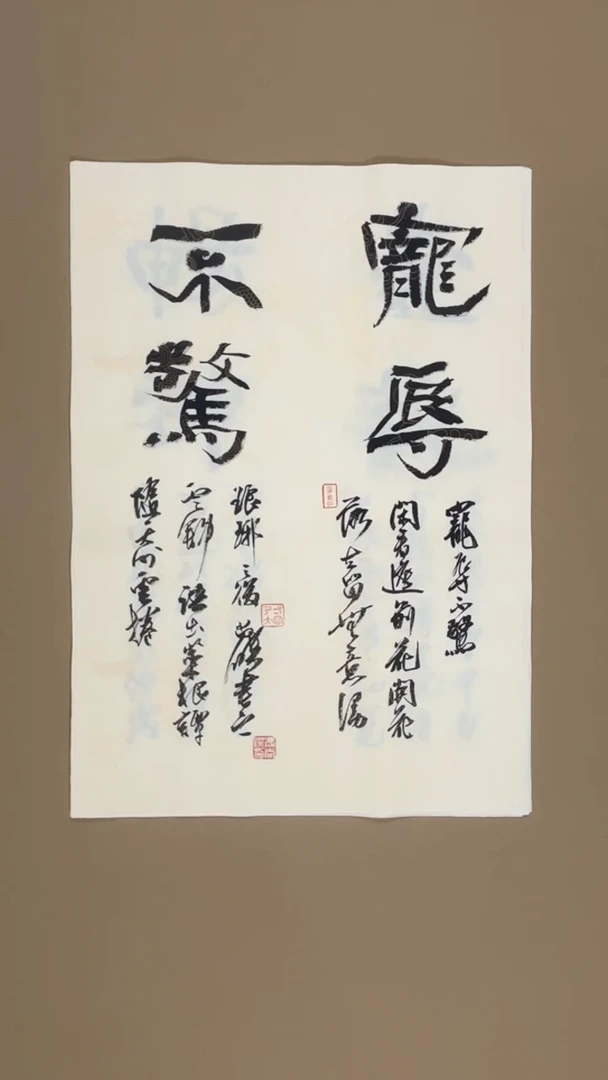 寵辱
不驚
寵辱不驚
閑看庭前花開花
落去留無意漫
隨天外雲捲
雲舒語出菜根譚
瑯琊書之